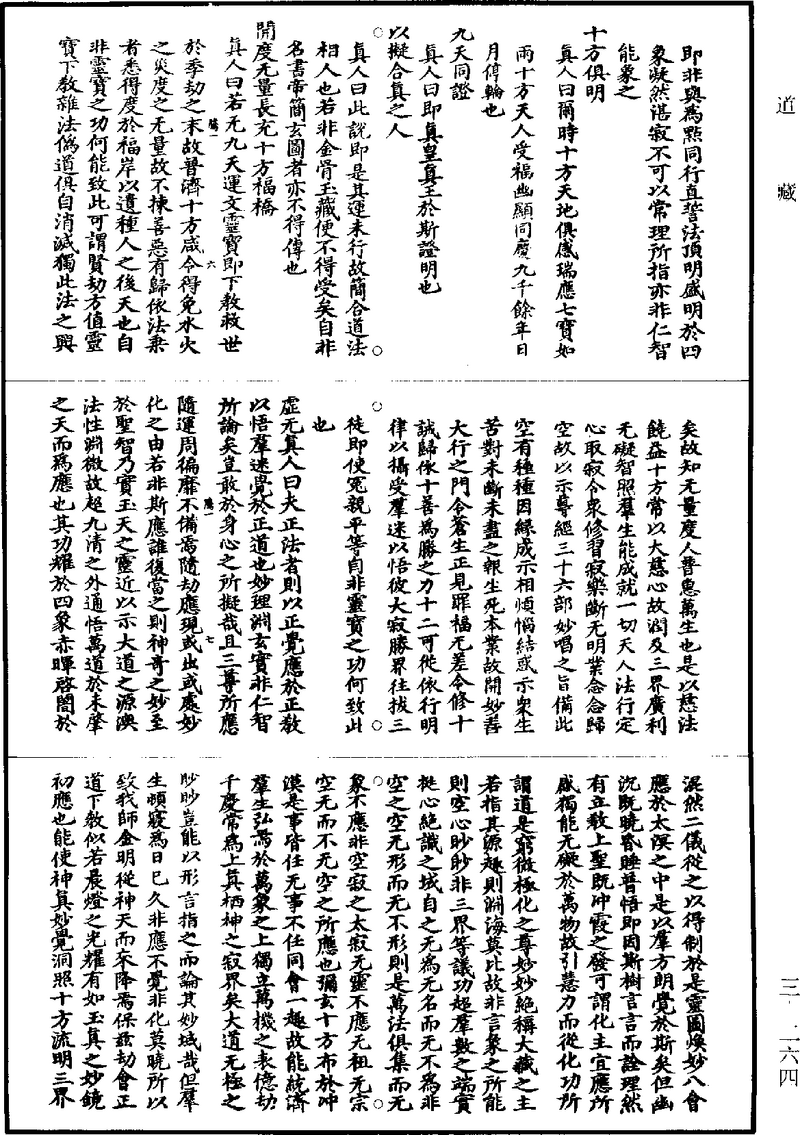 道藏
三·二六四
即非與為點同行直誓法頂明盛明於四
象凝然湛寂不可以常理所指亦非仁智
能象之
十方俱明
真人曰爾時十方天地俱感瑞應七寶如
雨十方天人受福幽顯同慶九千餘年日
月停輪也
九天同證
真人曰即真皇真王於斯證明也
以擬合真之人
真人曰此說即是其運未行故簡合道法
相人也若非金骨玉藏便不得受矣自非
名書帝簡玄圖者亦不得傳也
開度无量長充十方福橋
真人曰若无九天運文靈寶即下教救世
於季劫之末故普濟十方咸令得免水火
之災度之无量故不揀善惡有歸依法乘
者悉得度於福岸以遺種人之後天也自
非靈寶之功何能致此可謂賢劫方值靈
寶下教雜法偽道俱自消滅獨此法之興
矣故知无量度人普惠萬生也是以慈法
饒益十方常以大慈心故潤及三界廣利
无礙智照羣生能成就一切天人法行定
心取寂令衆修習寂樂斷无明業念念歸
空故以示尊經三十六部妙唱之旨備此
空有種種因緣成示相煩惱結或示衆生
苦對未斷未盡之報生死本業故開妙善
大行之門令蒼生正見罪福无差令修十
誠歸依十善為勝之力十二可從依行明
律以攝受羣迷以悟彼大寂勝界往拔三
徒即使冤親平等自非靈寶之功何致此
也
虛无真人曰夫正法者則以正覺應於正教
以悟羣迷覺於正道也妙理淵玄實非仁智
所論矣豈敢於身心之所擬哉且三尊所應
隨運周徧靡不備焉隨劫應現或出或處妙
化之由若非斯應誰復當之則神哥之妙至
於聖智乃實玉天之靈近以示大道之源澳
法性淵微故超九清之外通悟萬道於未肇
之天而為應也其功耀於四象赤暉啓闇於
混然二儀從之以得制於是靈圖煥妙八會
應於太漠之中是以羣方朗覺於斯矣但幽
沉既曉昏睡普悟即因斯樹言言而詮理然
有立教上聖既沖霞之發可謂化主宜應所
感獨能无礙於萬物故引慧力而從化功所
謂道是窮微極化之尊妙妙絕稱大藏之主
若指其源趣則淵海莫比故非言象之所能
則空心眇眇非三界等議功超羣數之端實
挺心絕識之域自之无為无名而无不為非
空之空无形而无不形則是萬法俱集而无
象不應非空寂之太寂无靈不應无祖无宗
空无而不无空之所應也彌玄十方布於沖
漠是事皆任无事不任同會一趣故能統濟
羣生弘焉於萬象之上獨立萬機之表德劫
千慶常為上真栖神之寂界矣大道无極之
眇眇豈能以形言指之而論其妙域哉但羣
生頑寢為日已久非應不覺非化莫曉所以
致我師金明從神天而來降焉保茲劫會正
道下教似若晨燈之光耀有如玉真之妙鏡
初應也能使神真妙覺洞照十方流明三界